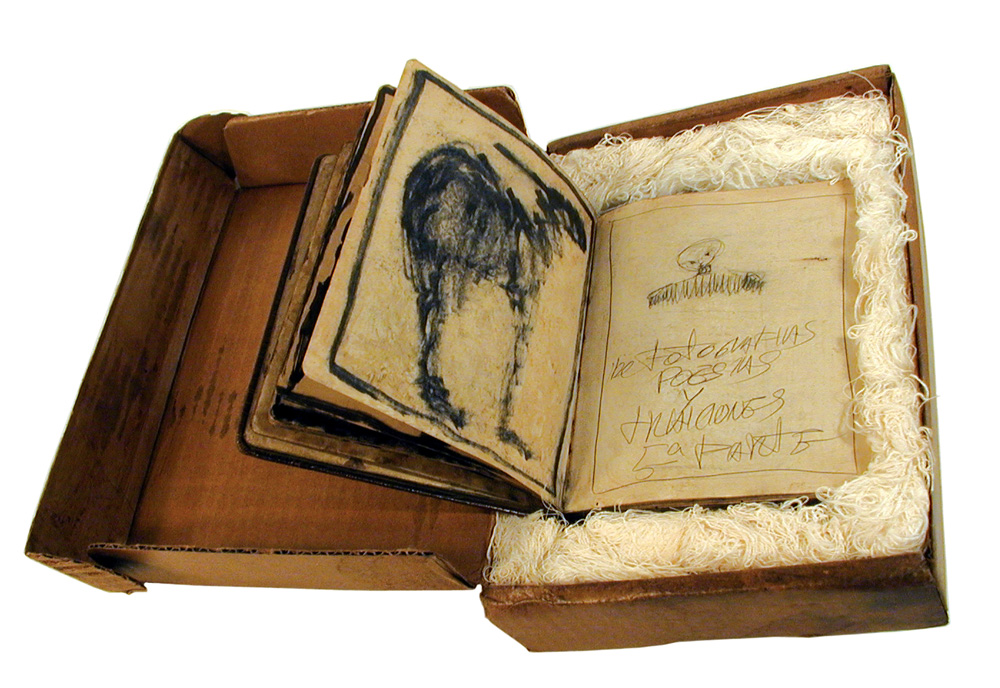 DE FOTOGRAFIAS
POESIAS
Y
TRAICIONES
5a PARTE